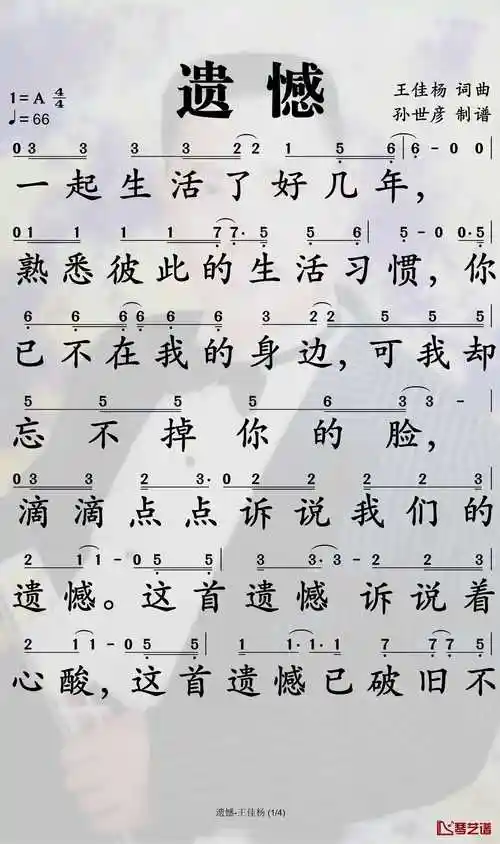 遗憾
1=A 4/4
♩=66
王佳杨 词曲
孙世彦 制谱
03 3 3 3 3 2 2 1 5 6 | 6 - 0 0
一起生活了好几年，
01 1 1 1 1 7 7· 5 5 5 6 | 5 - 0 0·5
熟悉彼此的生活习惯，你
6 6 6 6 6 6 6 3 2 2 5 5 5
已不在我的身边，可我却
5 5 5 5 6 3 3 - |
忘不掉你的脸，
03 3 2 3· 0 2 2 2 3
滴滴点点诉说我们的
2 1 1 - 0 5 5 3 3· 3 2 2 3
遗憾。这首遗憾 诉说着
2 1 1 - 0 5 5 1 1· 1·1 6 7 7· 5
心酸，这首遗憾已破旧不
遗憾-王佳杨 (1/4)
琴艺谱